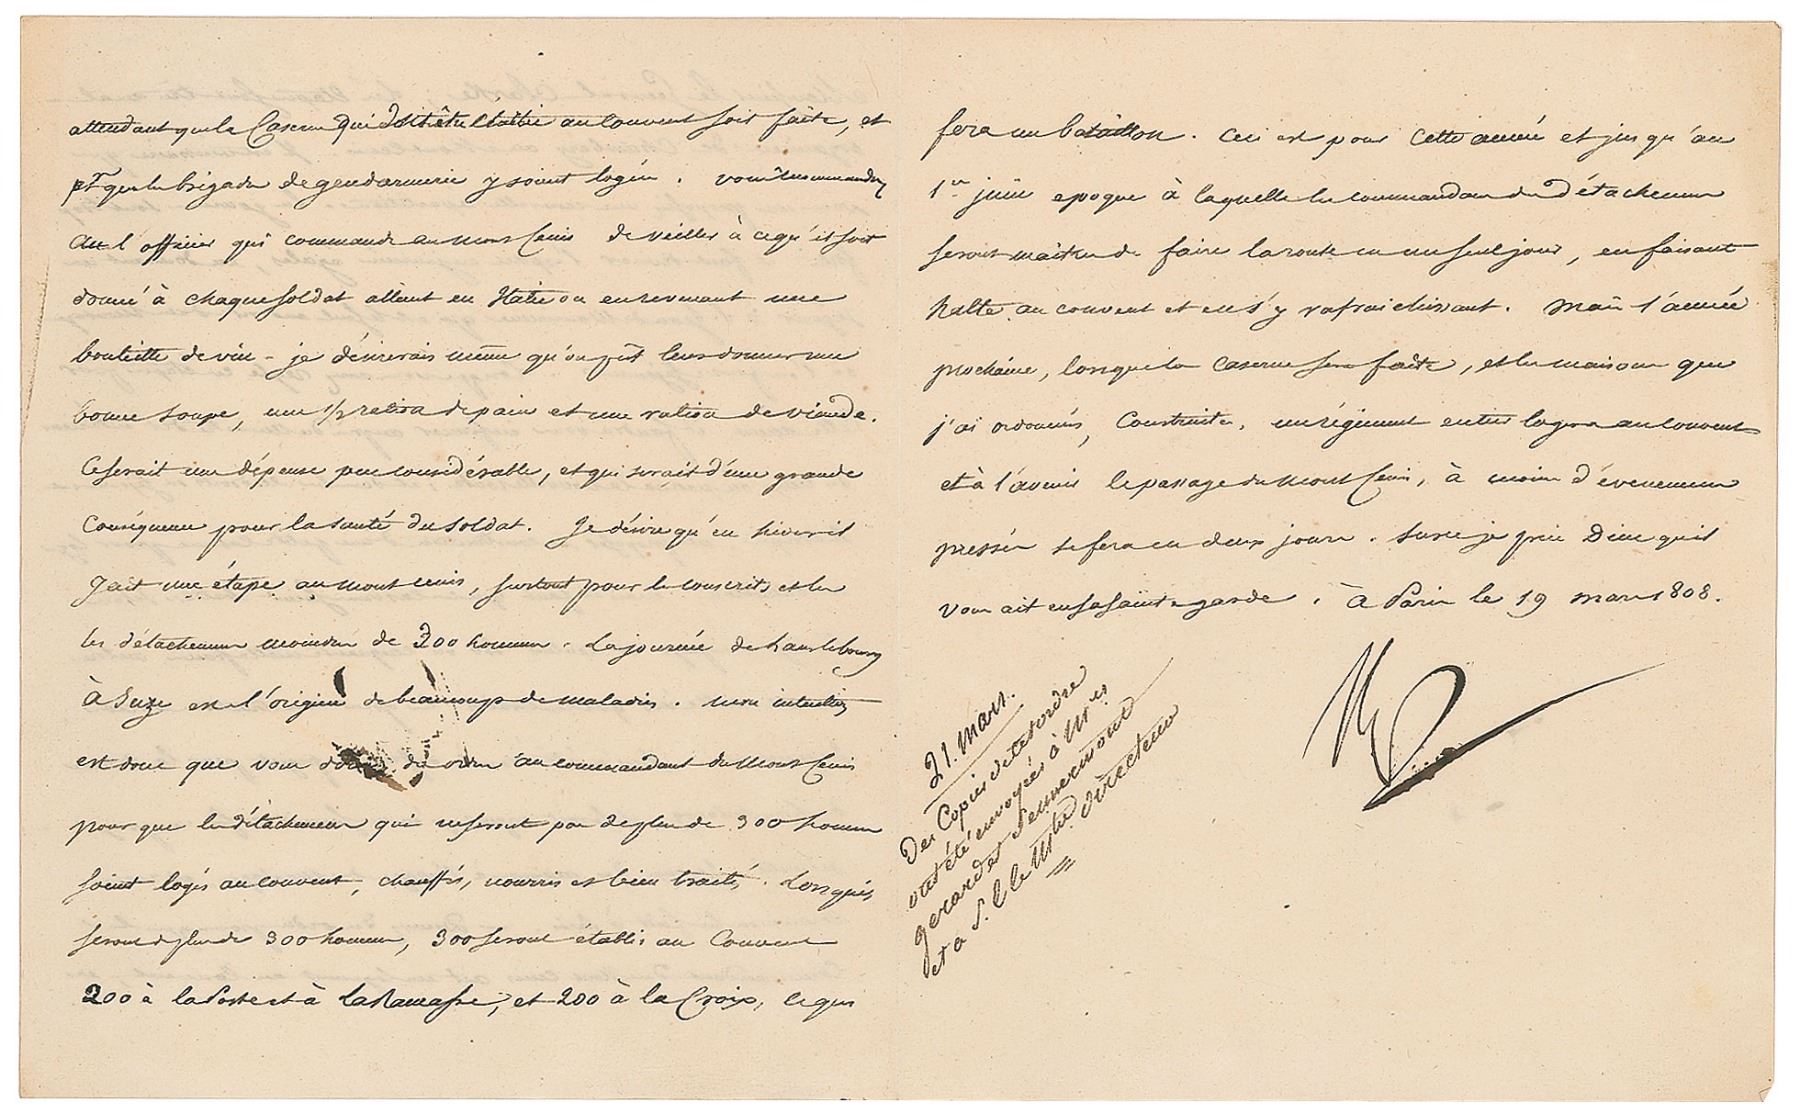 attendant que la Caserne qui doit être établie au Couvent soit faite, et
et que la brigade de gendarmerie y soient logés. Vous recommanderez
à l'officier qui commande au Mont Cenis de veiller à ce qu'il soit
donné à chaque soldat allant en Italie ou en revenant une
bouteille de vin - je désirerais même qu'on pût leur donner une
bonne soupe, une 1/2 ration de pain et une ration de viande.
Ce serait une dépense peu considérable, et qui serait d'une grande
Conséquence pour la santé du soldat. Je désire qu'en hiver il
y ait une étape au Mont Cenis, surtout pour les conscrits et les
les détachemens moindres de 300 hommes. La journée de Lanslebourg
à Suze est l'origine de beaucoup de maladies. Mon intention
est donc que vous donniez des ordres au commandant du Mont Cenis
pour que les détachemens qui ne seront pas de plus de 300 hommes
soient logés au couvent, chauffés, nourris et bien traités. Lorsqu'ils
seront de plus de 300 hommes, 300 seront établis au Couvent
200 à la Poste et à la Ramasse, et 200 à la Croix, ce qui
fera un bataillon. Ceci est pour cette année et jusqu'au
1er juin epoque à laquelle le commandant du détachement
serait maître de faire la route en un seul jour, en faisant
halte au couvent et en s'y rafraichissant. Mais l'année
prochaine, lorsque la caserne sera faite, et les maisons que
j'ai ordonnés, Construites, un régiment entier logera au couvent
et à l'avenir le passage du Mont Cenis, à moins d'évenemens
pressés se fera en deux jours. Sur ce je prie Dieu qu'il
vous ait en sa sainte garde. à Paris le 19 mars 1808.
21. Mars.
Des Copies de cet ordre
ont été envoyées à Mrs
gerardet Sennermont
et a S. E. le Mtre directeur